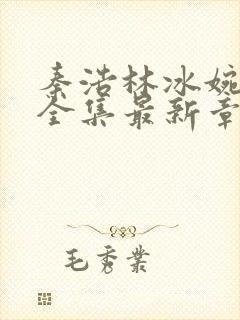 秦浩林冰婉
全集最新章
毛秀業